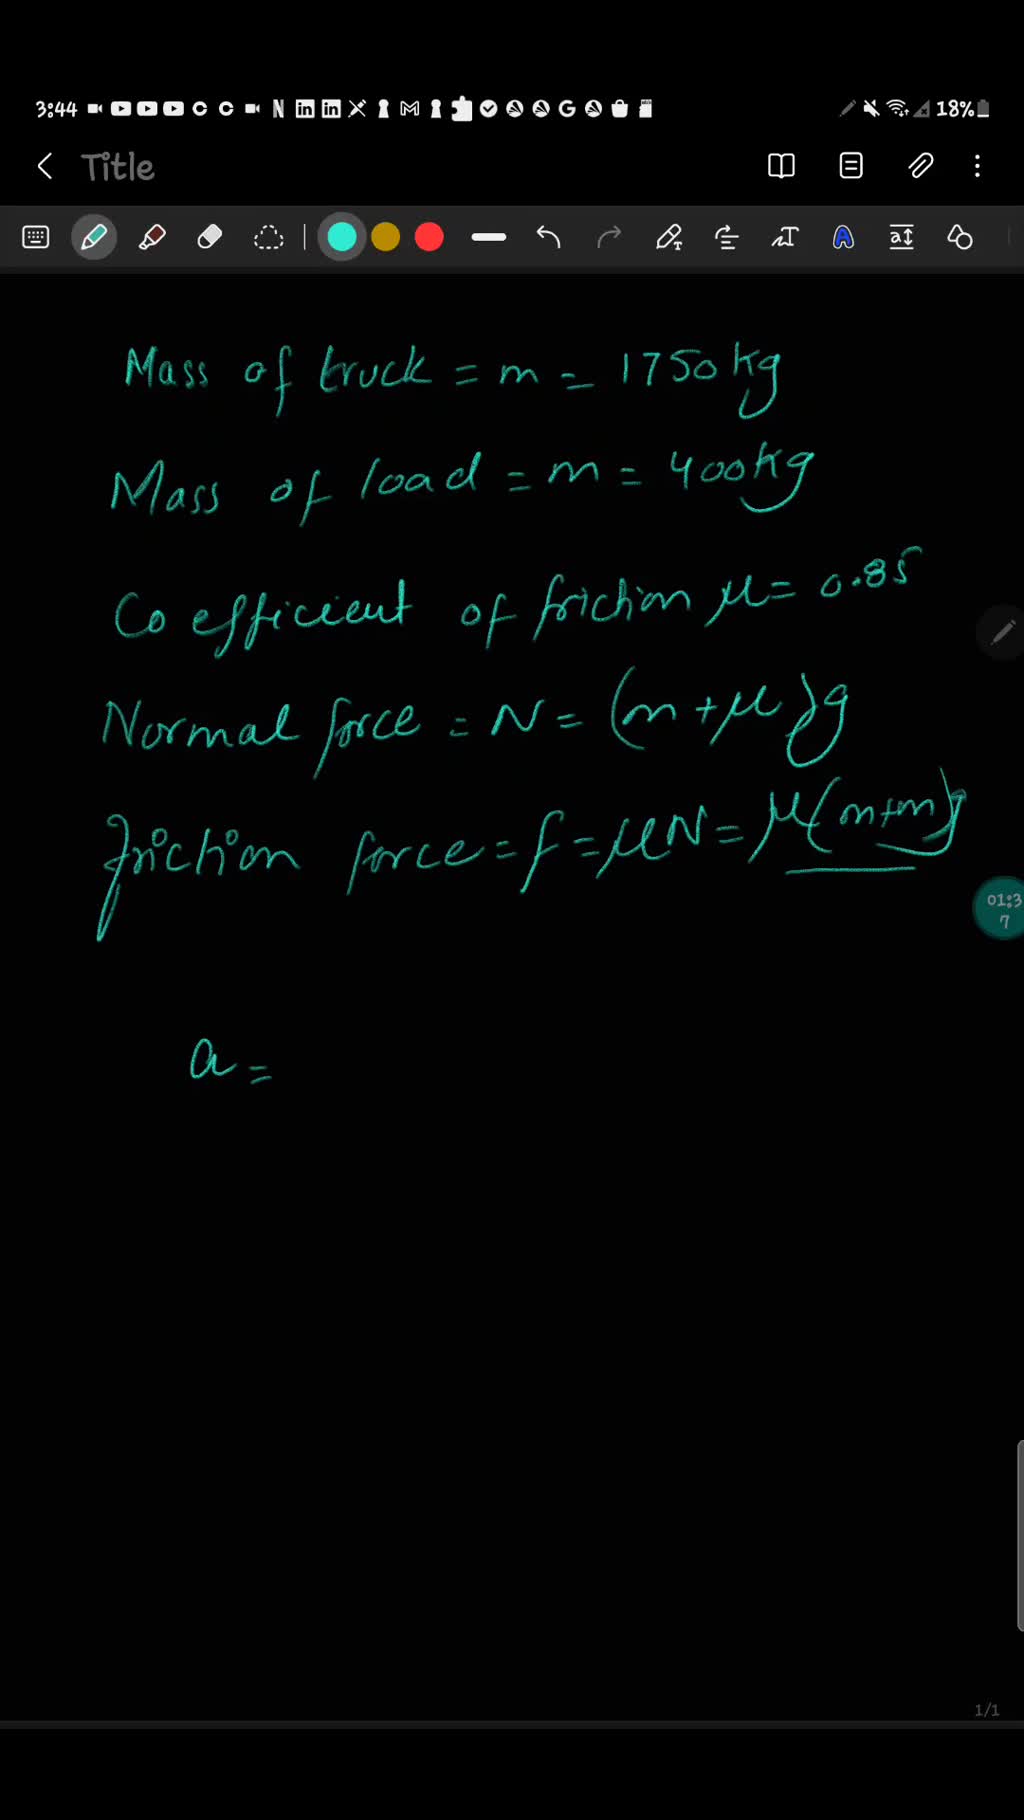 3:44 18%
Title
Mass of truck = m = 1750kg
Mass of load = m = 400kg
Coefficient of friction μ = 0.85
Normal force = N = (m + μ)g
friction force = f = μN = μ(m+m)g
01:3
7
a =
1/1